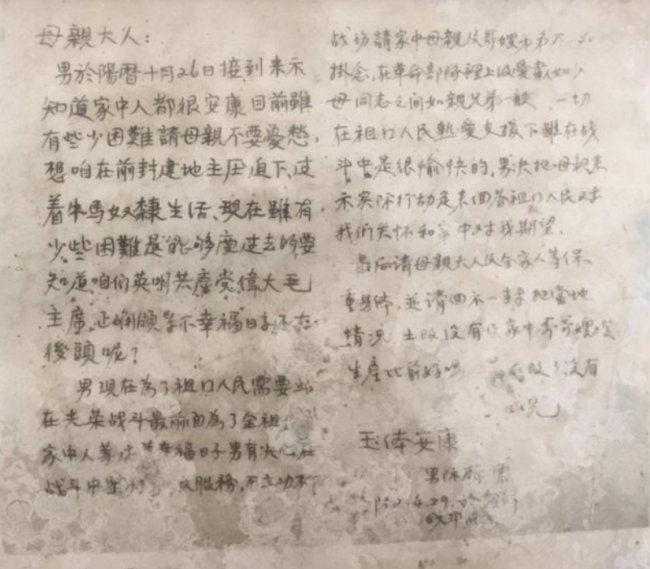 母親大人：
男於陽曆十月26日接到来示
知道家中人都很安康目前雖
有些少困難請母親不要憂愁，
想咱在前封建地主压迫下，过
着牛馬奴隸生活，現在雖有
少些困難是能够度过去的要
知道咱们英明共產党偉大毛
主席，正确領导下幸福日子还在
後頭呢？
男現在為了祖口人民需要站
在光榮战斗最前面為了全祖
家中人等 幸福日子男有决心在
战斗中 服務，不立功不
战场請家中母親及哥嫂弟弟不
掛念，在革命部隊裡上级爱戴如
母同志之间如親兄弟一般 一切
在祖口人民熱爱支援下雖在战
斗中是很愉快的，男决把母親来
示实际行动定来回答祖口人民对
我們关怀和家中对我期望。
最后請母親大人及全家人等保
重身体，並請回示一封把當地
情况 土改没有 家中哥哥嫂嫂
生產比前好 没有
玉体安康
男
4.29